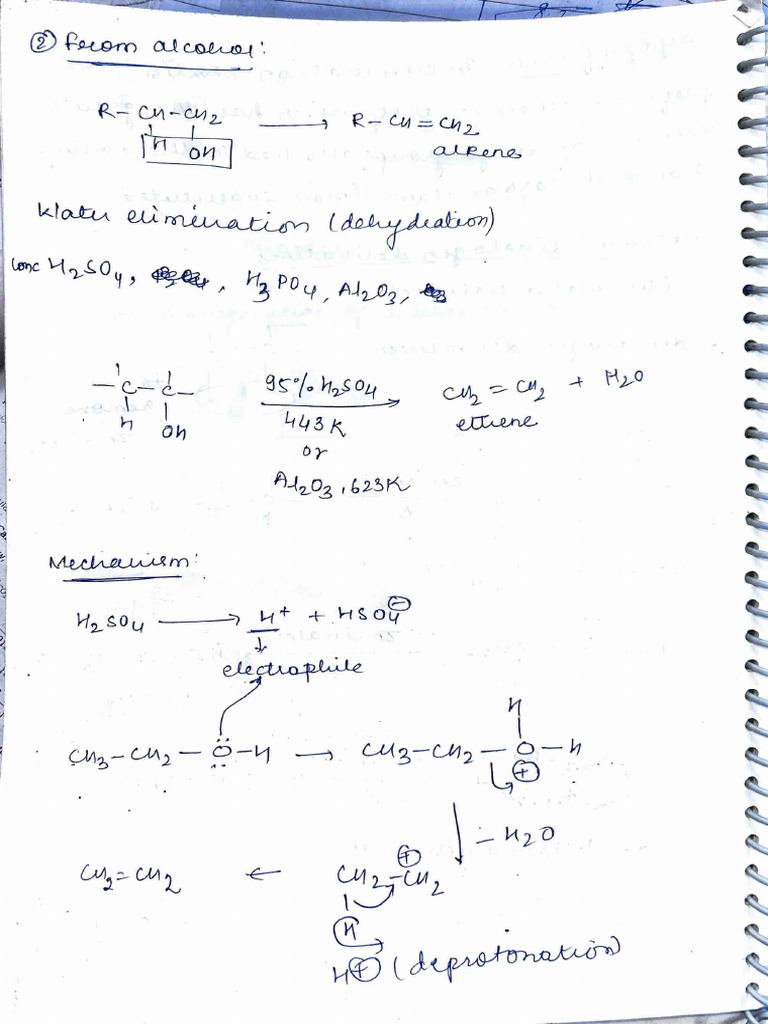 ② From alcohol:
R-CH-CH2 → R-CH=CH2
H OH alkene
Water elimination (dehydration)
Conc H2SO4, , H3PO4, Al2O3,
-C-C- 95% H2SO4 → CH2=CH2 + H2O
H OH 443K ethene
or
Al2O3, 623K
Mechanism:
H2SO4 → H+ + HSO4⊖
↓
electrophile
CH3-CH2-Ö-H → CH3-CH2-O-H
H
⊕
↓ -H2O
CH2=CH2 ← CH2-CH2
⊕
H
H⊕ (deprotonation)